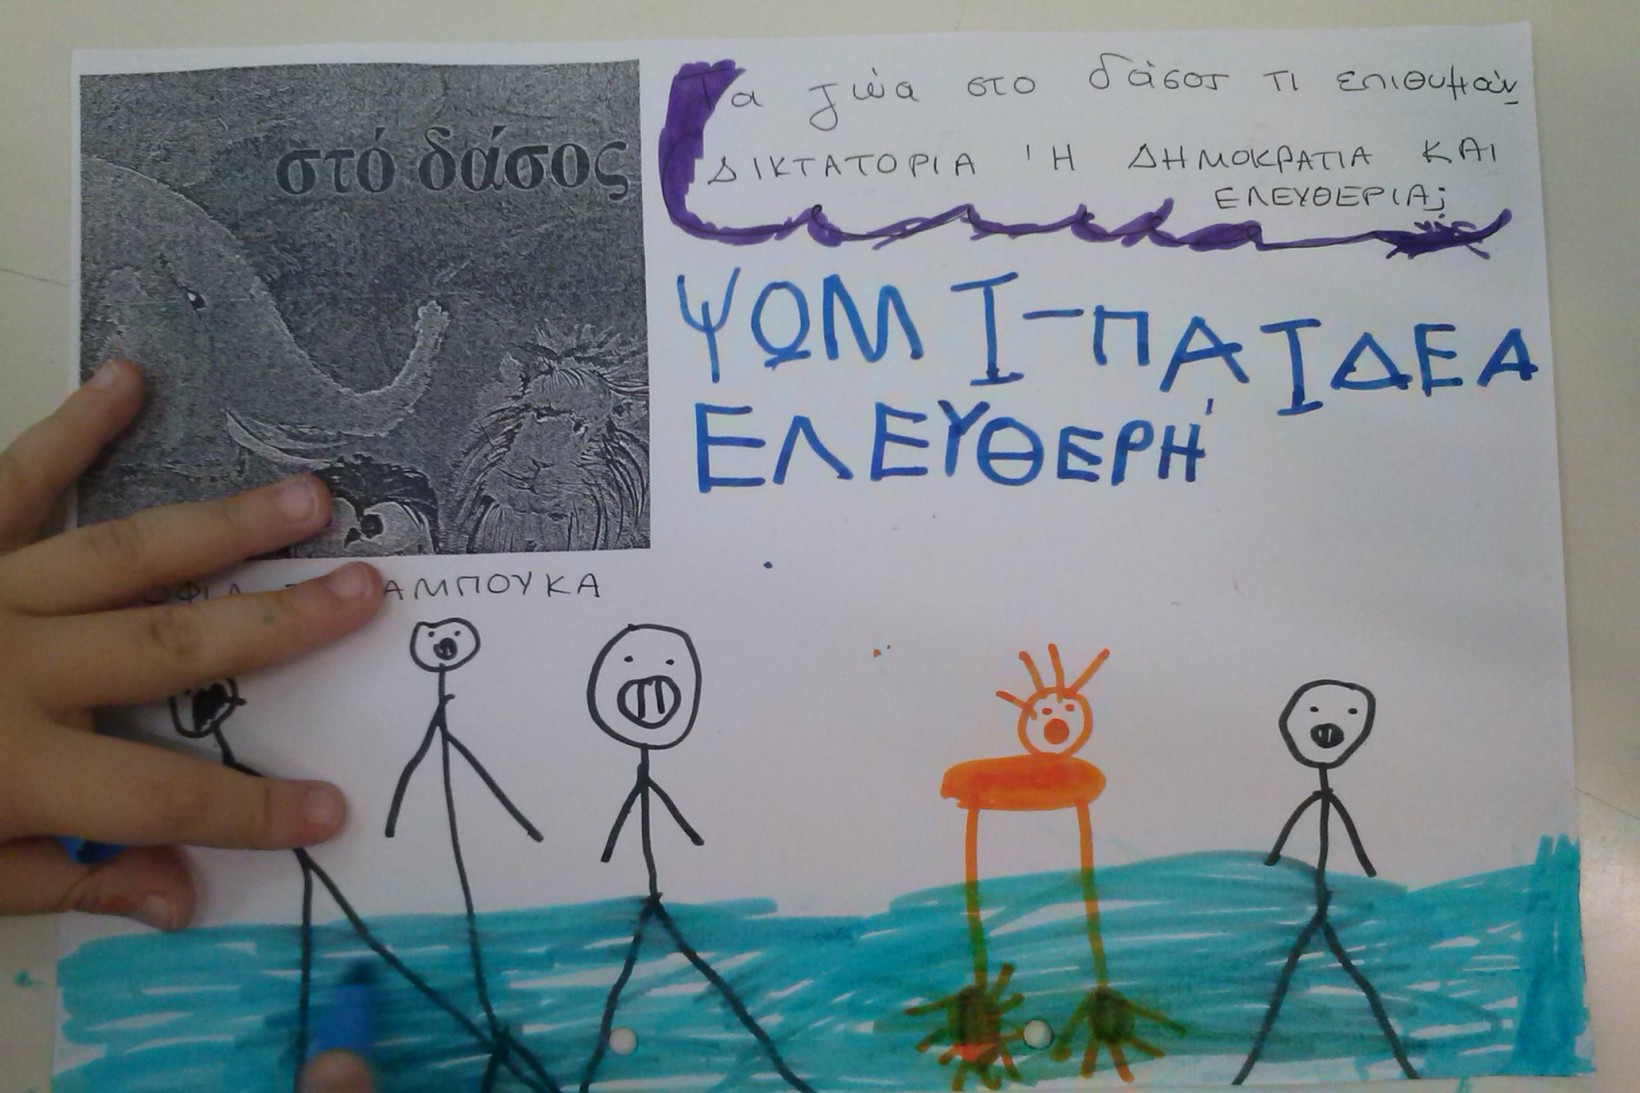 στό δάσος
Τα ζώα στο δάσος τι επιθυμούν
ΔΙΚΤΑΤΟΡΙΑ 'Η ΔΗΜΟΚΡΑΤΙΑ ΚΑΙ
ΕΛΕΥΘΕΡΙΑ;
ΨΩΜΙ-ΠΑΙΔΕΑ
ΕΛΕΥΘΕΡΉ